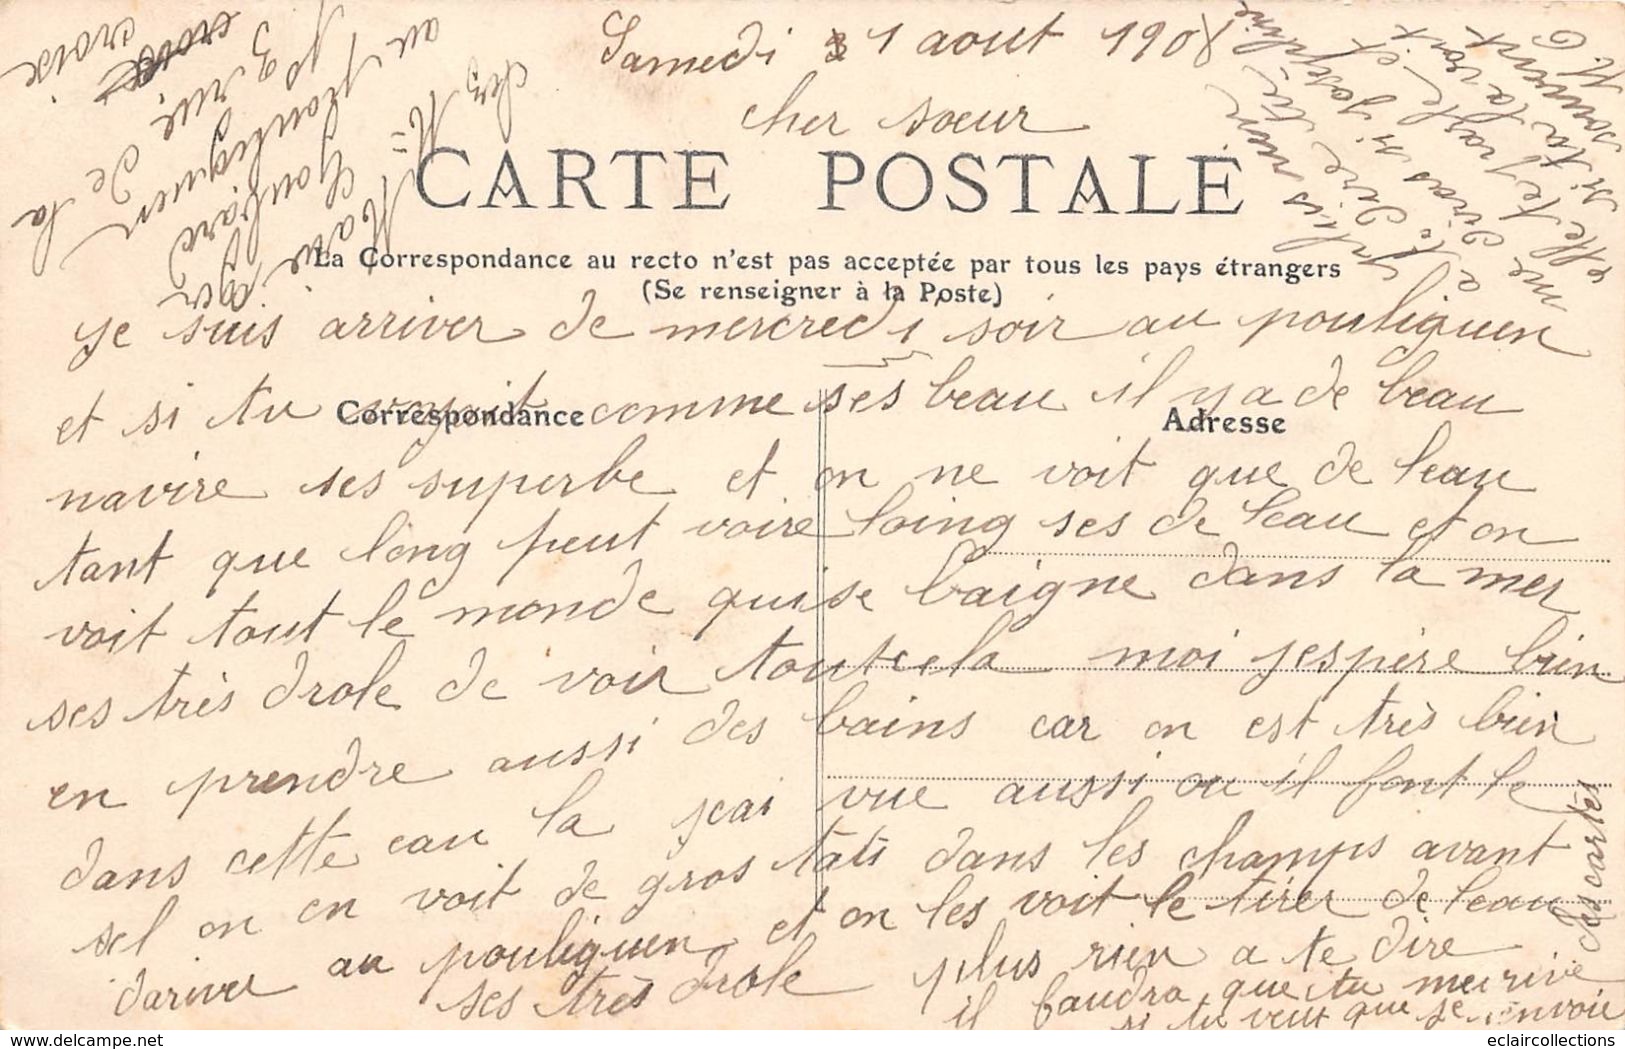 Samedi 1 aout 1908
cher soeur
CARTE POSTALE
La Correspondance au recto n'est pas acceptée par tous les pays étrangers
(Se renseigner à la Poste)
Correspondance
Adresse
je suis arriver de mercredi soir au pouliguen
et si tu voyait comme ses beau il y a de beau
navire ses superbe et on ne voit que de leau
tant que long peut voire loing ses de leau et on
voit tout le monde qui se baigne dans la mer
ses très drole de voir tout cela moi jespère bien
en prendre aussi des bains car on est très bien
dans cette eau la jeai vue aussi ou il font le
sel on en voit de gros tats dans les champs avant
dariver au pouliguen et on les voit le tirer de leau
ses très drole plus rien a te dire
il faudra que tu me rive
si tu veut que je envoie
des cartes
chez Mme Marie
Goubard
au pouliguen
rue de la
croix
plus rien
a te dire tu
me diras si Joséphine
elle te et
si tu la voit
souvent
M. G
eclaircollections